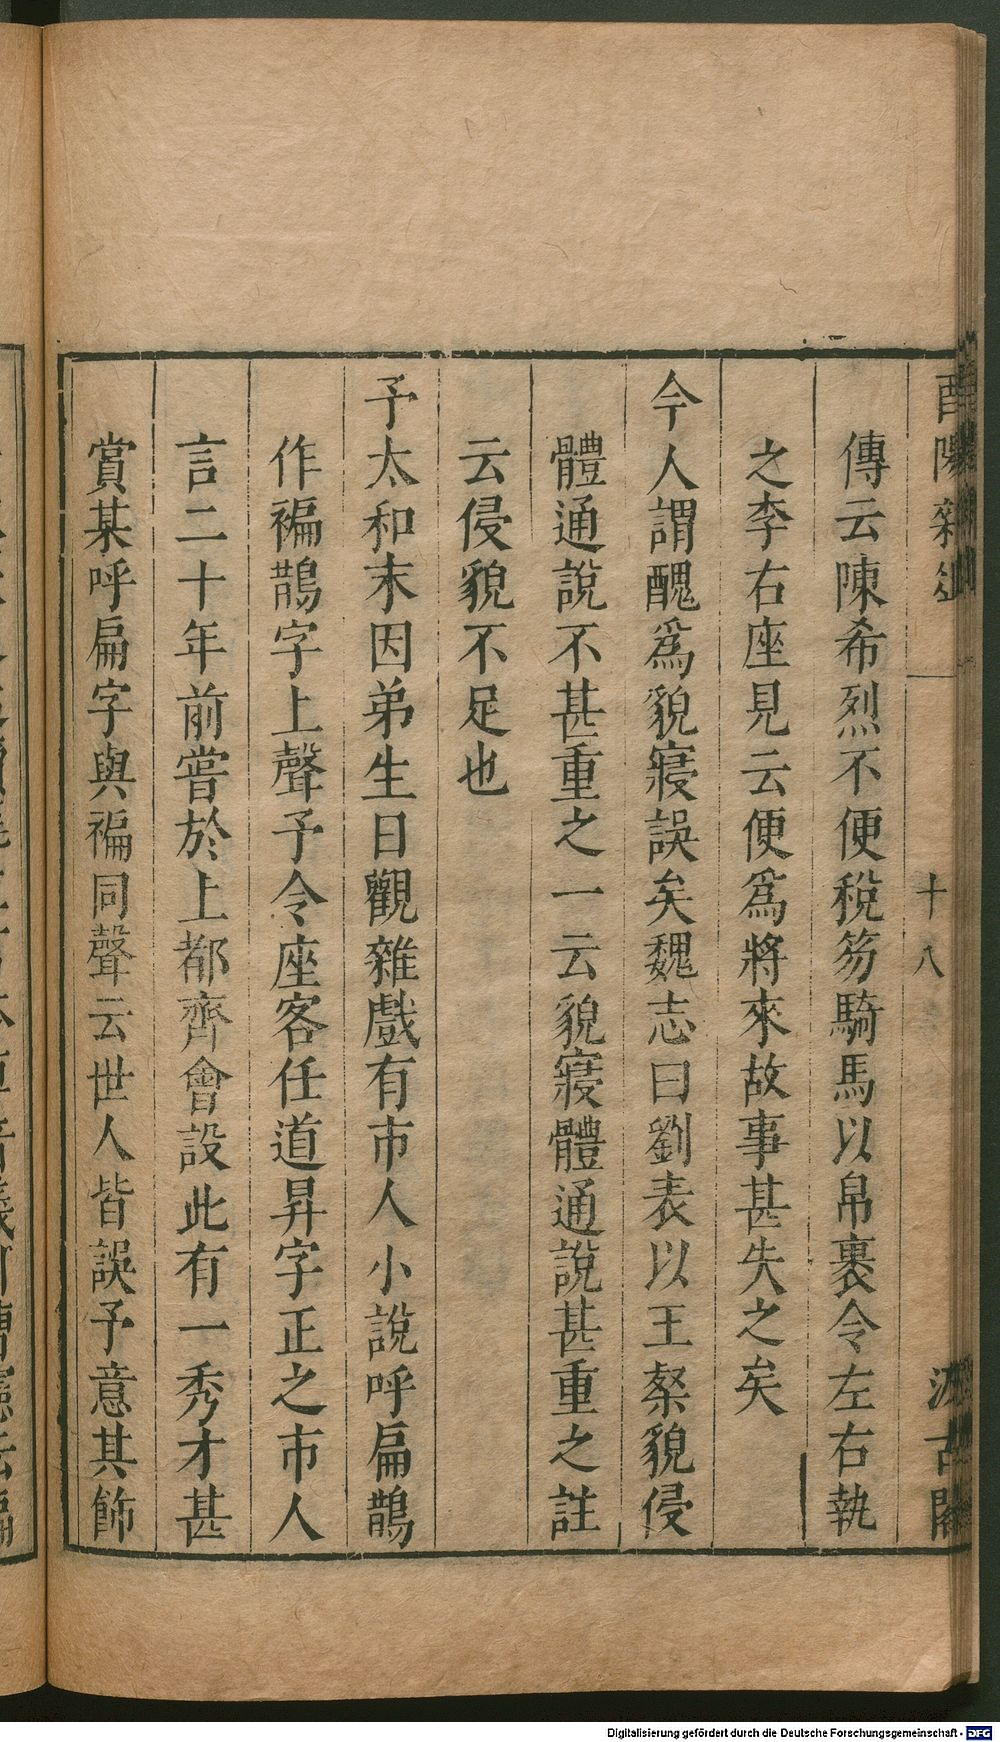 傳云陳希烈不便稅笏騎馬以帛裹令左右執
之李右座見云便爲將來故事甚失之矣
今人謂醜爲貌寢誤矣魏志曰劉表以王粲貌侵
體通說不甚重之一云貌寢體通說甚重之註
云侵貌不足也
予太和末因弟生日觀雜戲有市人小說呼扁鵲
作褊鵲字上聲予令座客任道昇字正之市人
言二十年前嘗於上都齊會設此有一秀才甚
賞某呼扁字與褊同聲云世人皆誤予意其飾
十八
汲古閣
Digitalisierung gefördert durch die Deutsche Forschungsgemeinschaft - DFG